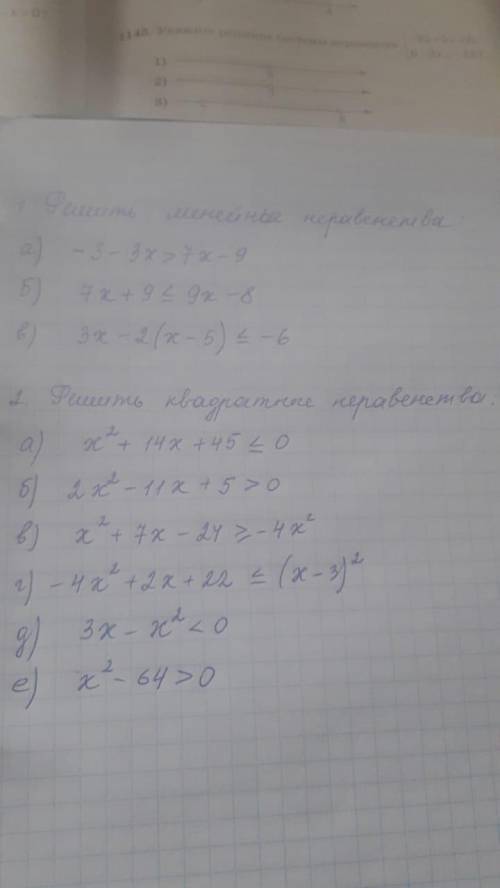 1145. Укажите решение системы неравенств
1)
2)
3)
1. Решить линейные неравенства:
а) -3-3x>7x-9
б) 7x+9≤9x-8
в) 3x-2(x-5)≤-6
2. Решить квадратные неравенства:
а) x²+14x+45≤0
б) 2x²-11x+5>0
в) x²+7x-24≥-4x²
г) -4x²+2x+22≤(x-3)²
д) 3x-x²<0
е) x²-64>0